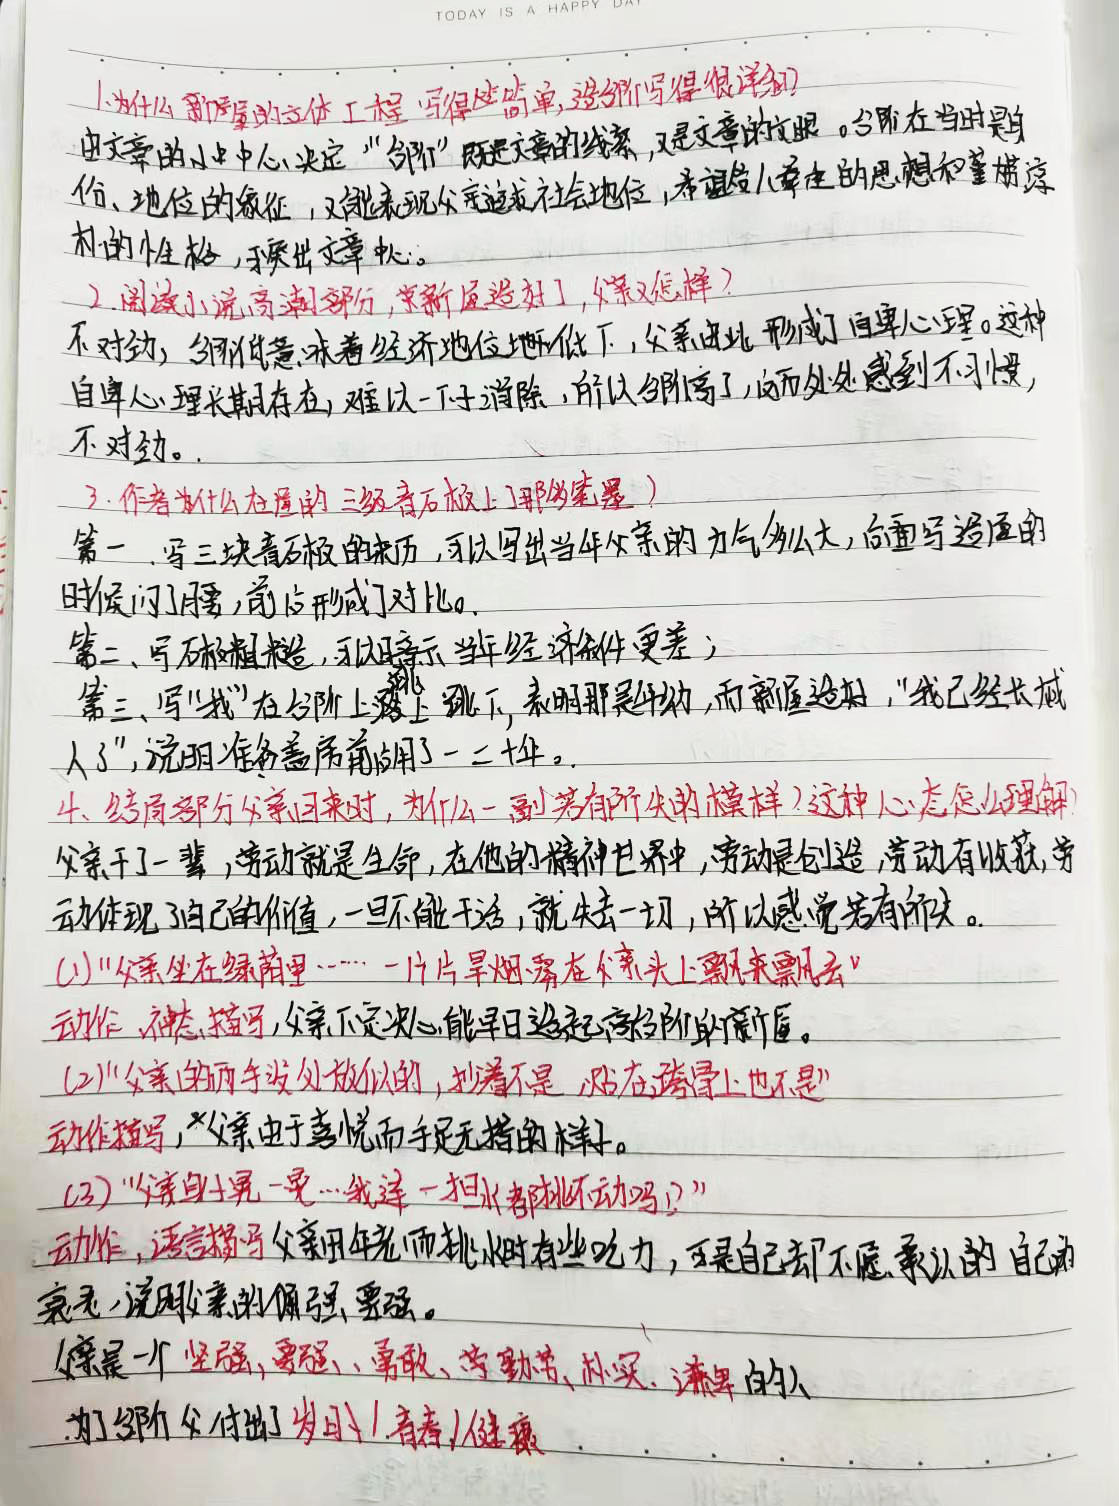 TODAY IS A HAPPY DAY
1.为什么新屋的主体工程写得简单,造台阶写得很详细?
由文章的中心决定"台阶"既是文章的线索,又是文章的文眼。台阶在当时是身
份、地位的象征,又能表现父亲追求社会地位,希望受人尊走的思想和谨慎淳
朴的性格,突出文章中心。
2.阅读小说高潮部分,当新屋造好了,父亲又怎样?
不对劲,台阶低意味着经济地位地低下,父亲由此形成了自卑心理。这种
自卑心理长期存在,难以一下子消除,所以台阶高了,反而处处感到不习惯,
不对劲。
3.作者为什么在屋的三级青石板上了那多笔墨)
第一、写三块青石板的来历,可以写出当年父亲的力气多么大,后面写造屋的
时候闪了腰,前后形成了对比。
第二、写石板粗糙,可以暗示当年经济条件更差;
第三、写"我"在台阶上跳上跳下,表明那是年幼,而新屋造好,"我已经长成
人了",说明准备盖房前后用了一二十年。
4、结局部分父亲回来时,为什么一副若有所失的模样?这种心态怎么理解?
父亲干了一辈,劳动就是生命,在他的精神世界中,劳动是创造,劳动有收获,劳
动体现了自己的价值,一旦不能干活,就失去一切,所以感觉若有所失。
(1)"父亲坐在绿荫里……一片片旱烟雾在父亲头上飘来飘去"
动作、神态描写,父亲下定决心能早日造起高台阶的新屋。
(2)"父亲的两手没处放似的,抄着不是,贴在胯骨上也不是"
动作描写,父亲由于喜悦而手足无措的样子。
(3)"父亲身子晃一晃…我连一担水都挑不动吗!?"
动作,语言描写父亲因年老而挑水时有些吃力,可是自己却不愿承认的自己的
衰老,说明父亲的倔强、要强。
父亲是一个坚强、要强、勇敢、劳勤苦、朴实、谦卑的人
为了台阶父付出了岁月、/青春/健康